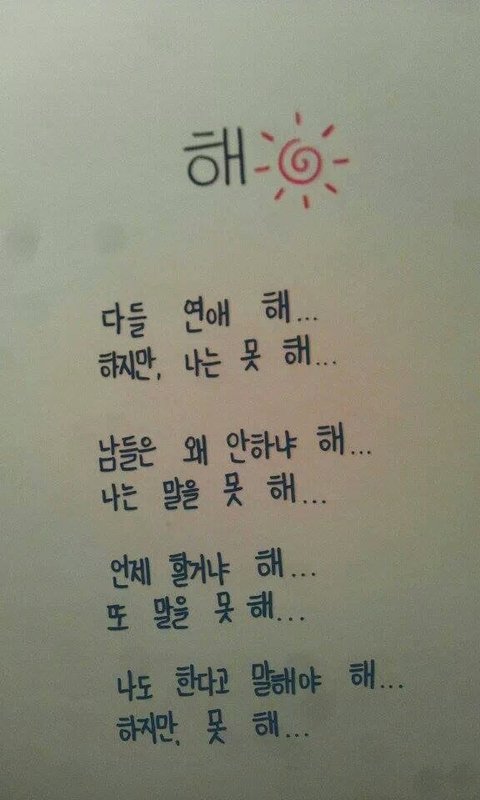 해
다들 연애 해...
하지만, 나는 못 해...
남들은 왜 안하냐 해...
나는 말을 못 해...
언제 할거냐 해...
또 말을 못 해...
나도 한다고 말해야 해...
하지만, 못 해...